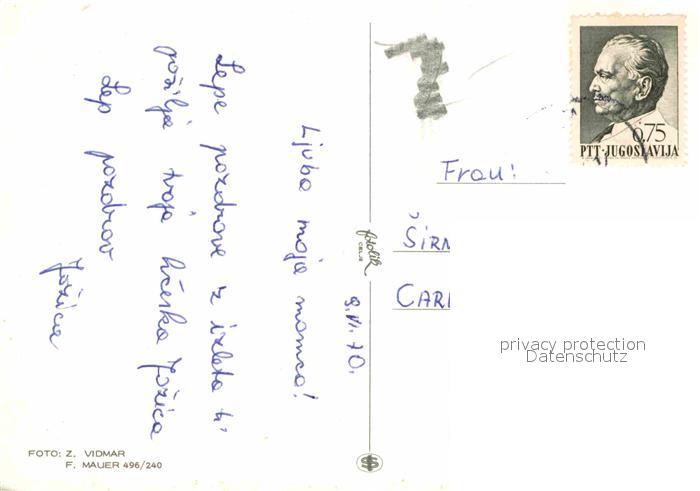 9. VI. 70.
Ljuba moja mamca!
Lepe pozdrave z izleta ti
pošilja tvoja hčerka Jožica
Lep pozdrav
Jožica
Frau:
ŠIRN
CARI
0.75
PTT·JUGOSLAVIJA
fotolik
CELJE
privacy protection
Datenschutz
FOTO: Z. VIDMAR
F. MAUER 496/240